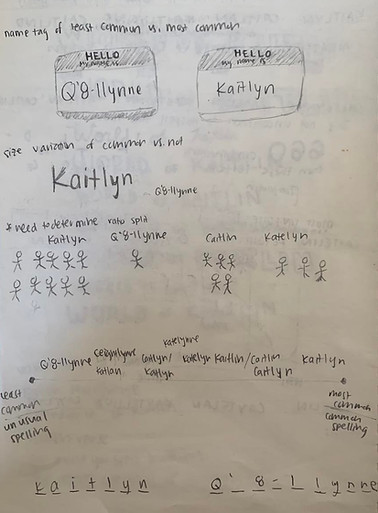 name tag of least common vs. most common
HELLO
my name is
Q'8-llynne
HELLO
my name is
Kaitlyn
size variation of common vs. not
Kaitlyn
Q'8-llynne
* need to determine ratio split
Kaitlyn Q'8-llynne Caitlin Katelyn
Katelynne
Q'8-llynne Caitlyn/ Katelyn Kaitlin/Caitlin Kaitlyn
Kaitlan Caitlyn
least
common
unusual
spelling
most
common
common
spelling
K a i t l y n
Q ' 8 - l l y n n e